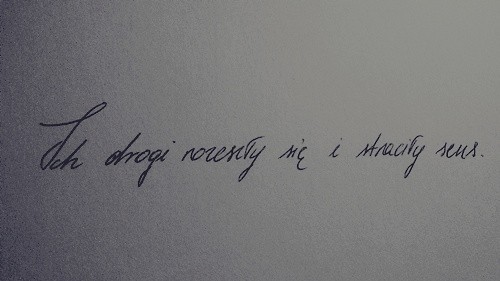 Ich drogi rozeszły się i straciły sens.